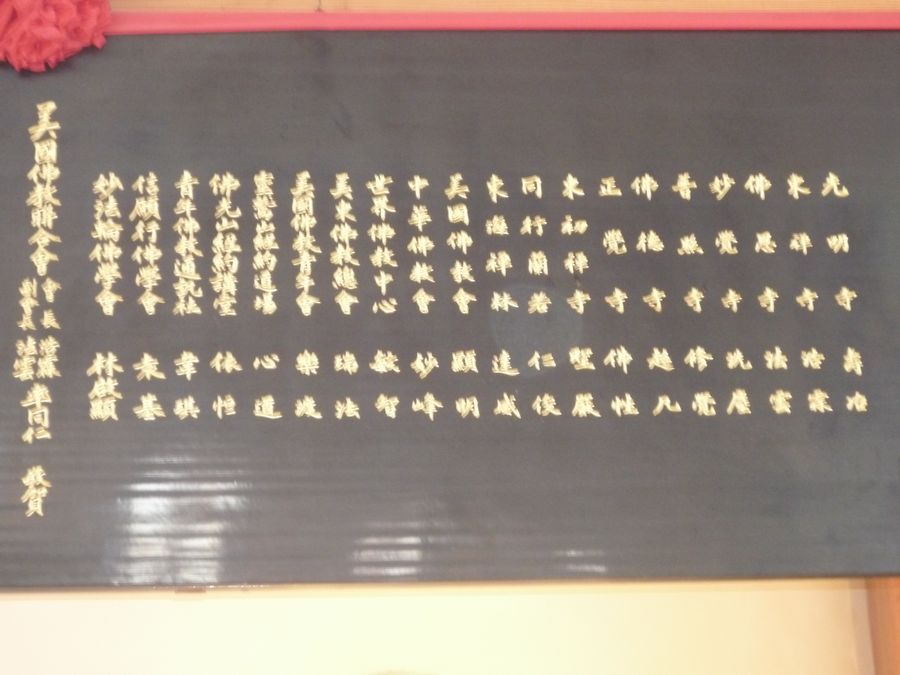 光明寺 壽冶
東禪寺 浩霖
佛恩寺 法雲
妙覺寺 洗塵
普照寺 修覺
佛德寺 超凡
正覺寺 佛性
東初禪寺 聖嚴
同行蘭若 仁俊
東禪林 達
美國佛教會 顯明
中華佛教會 妙峰
世界佛教中心 敏智
美東佛教總會 瑞法
美國佛教青年會 樂渡
靈鷲山紐約道場 心道
佛光山紐約講堂 依恒
青年佛教通訊社 韋琪
信願行佛學會 袁
妙法輪佛學會 林顯
美國佛教聯合會 會長 浩霖 副會長 法雲 率同仁 敬賀